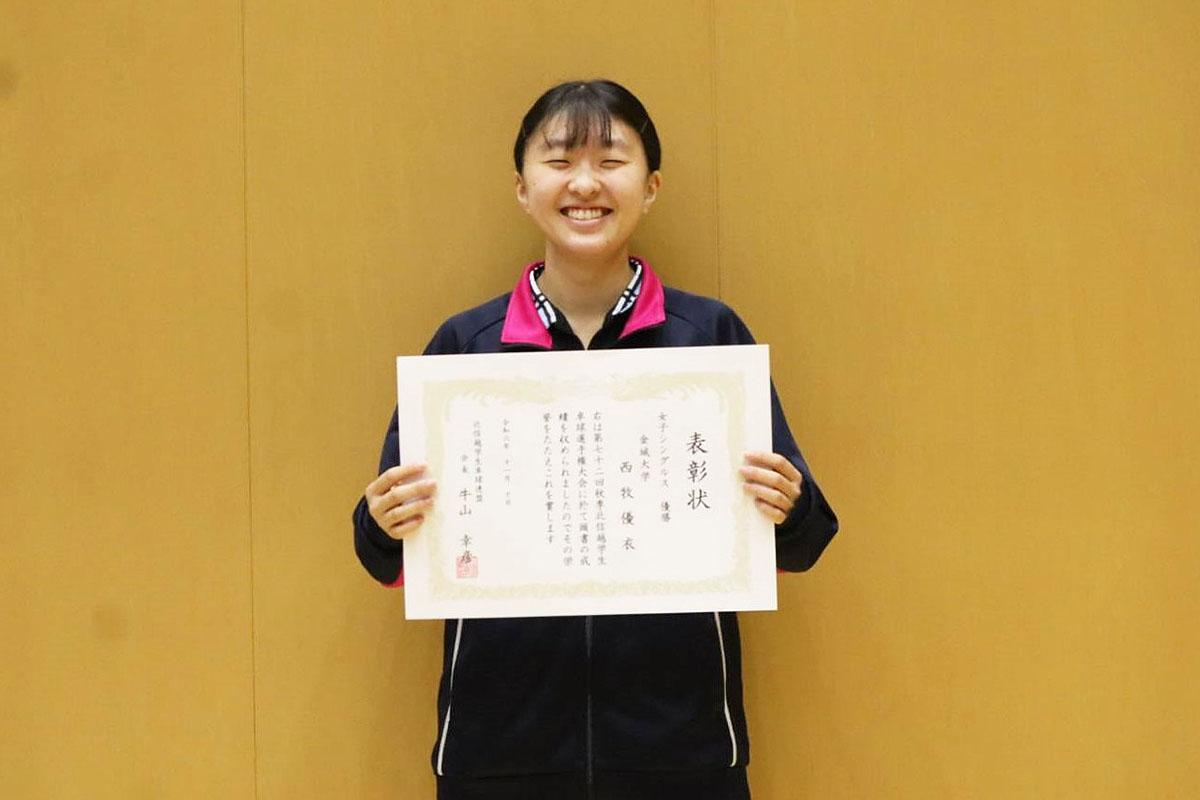 表彰状
女子シングルス 優勝
金城大学
西牧優衣
右は第七十二回秋季北信越学生
卓球選手権大会に於て頭書の成
績を収められましたのでその栄
誉をたたえこれを賞します
令和六年 十一月 十日
北信越学生卓球連盟
会長 牛山 幸彦